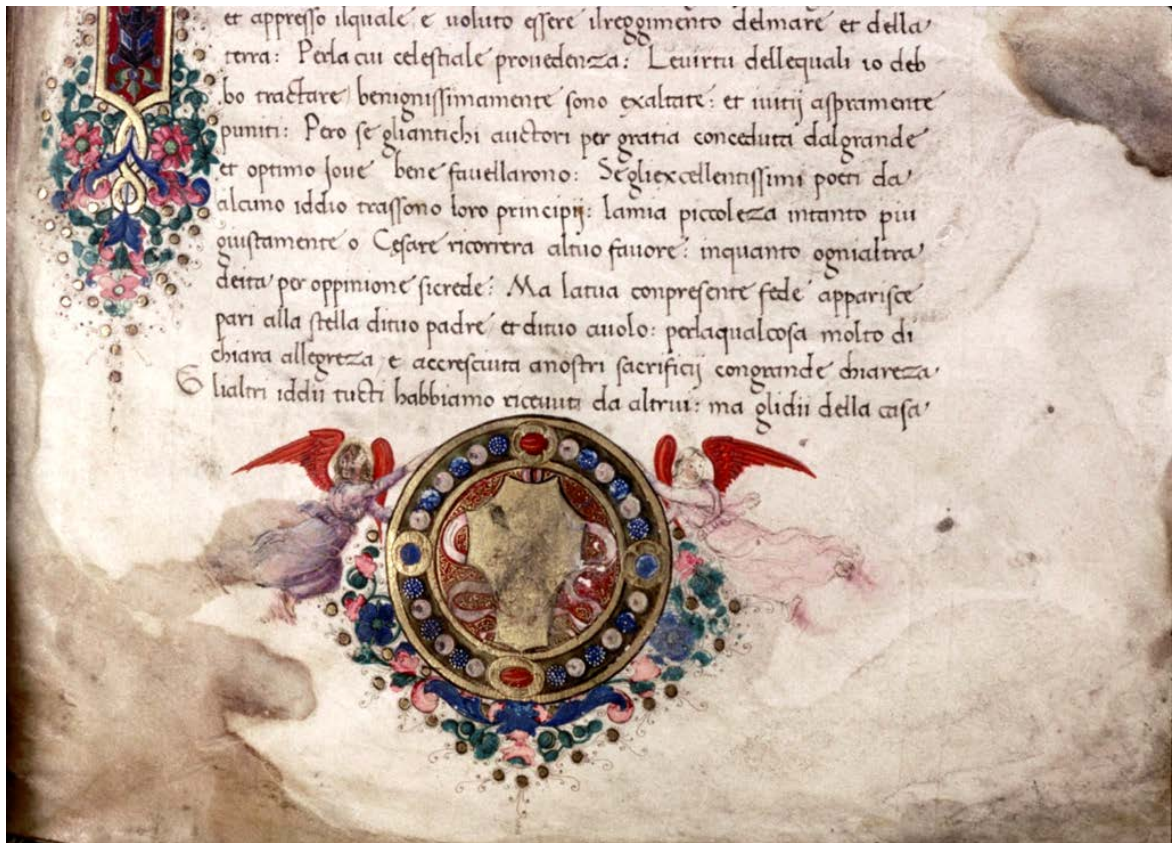 et appresso ilquale e uoluto essere ilreggimento delmare et della
terra: Perla cui celestiale prouedenza: Leuirtu dellequali io deb
bo tractare benignissimamente sono exaltate: et iuitij aspramente
puniti: Pero se gliantichi auctori per gratia conceduta dalgrande
et optimo Joue bene fauellarono: Segliexcellentissimi poeti da
alcuno iddio trassono loro principij: lamia piccoleza intanto piu
giustamente o Cesare ricorrera altuo fauore: inquanto ognialtra
deita per oppinione sicrede: Ma latua conpresente fede apparisce
pari alla stella dituo padre et dituo auolo: perlaqualcosa molto di
chiara allegreza e accresciuta anostri sacrificij congrande chiareza
Glialtri iddii tucti habbiamo riceuuti da altrui: ma glidii della casa